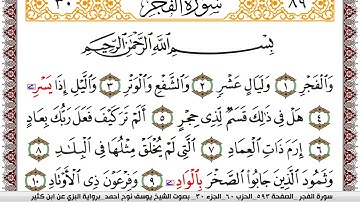 ٣٠ سُورَةُ الْفَجْرِ ٨٩
بِسْمِ اللَّهِ الرَّحْمَٰنِ الرَّحِيمِ
وَالْفَجْرِ ١ وَلَيَالٍ عَشْرٍ ٢ وَالشَّفْعِ وَالْوَتْرِ ٣ وَاللَّيْلِ إِذَا يَسْرِۦ
٤ هَلْ فِي ذَٰلِكَ قَسَمٌ لِذِي حِجْرٍ ٥ أَلَمْ تَرَ كَيْفَ فَعَلَ رَبُّكَ بِعَادٍ
٦ إِرَمَ ذَاتِ الْعِمَادِ ٧ الَّتِي لَمْ يُخْلَقْ مِثْلُهَا فِي الْبِلَٰدِ ٨
وَثَمُودَ الَّذِينَ جَابُوا الصَّخْرَ بِالْوَادِۦ ٩ وَفِرْعَوْنَ ذِي الْأَوْتَادِ ١٠
سورة الفجر _الصفحة ٥٩٣_ الحزب ٦٠_ الجزء ٣٠_ بصوت الشيخ يوسف نوح أحمد _برواية البزي عن ابن كثير